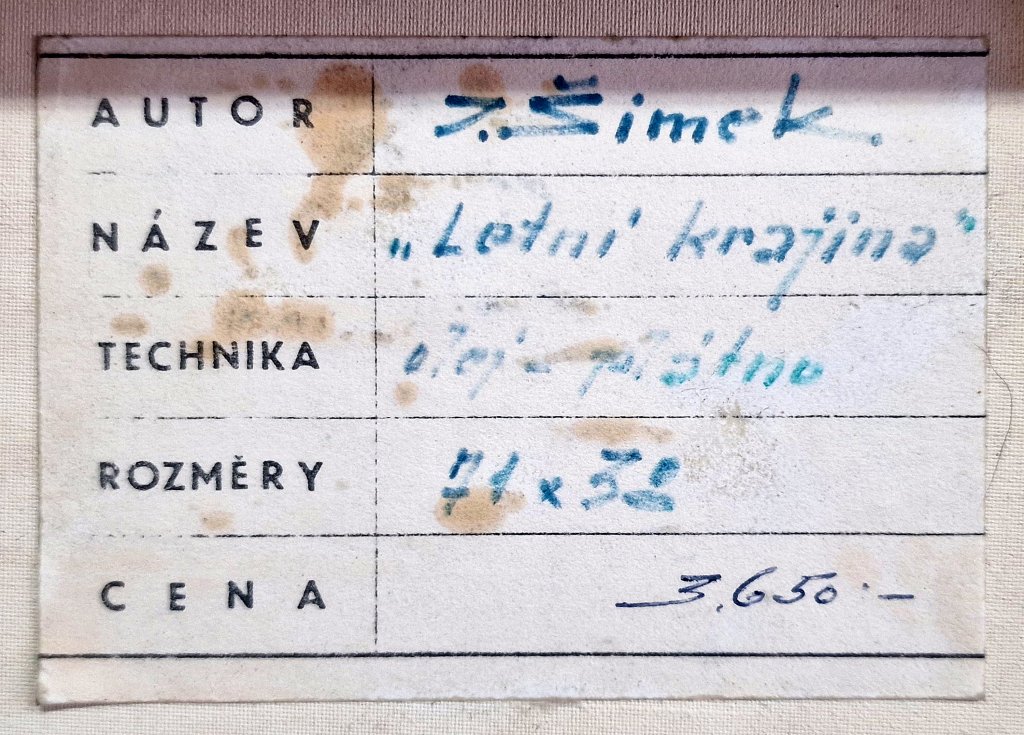 AUTOR J. Šimek.
NÁZEV „Letní krajina"
TECHNIKA olej - plátno
ROZMĚRY 71 x 32
CENA 3.650.-